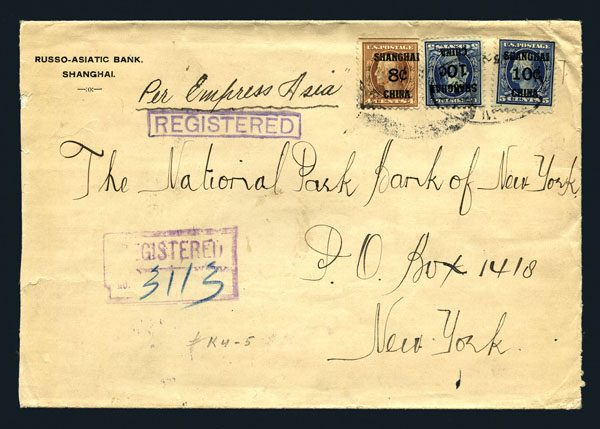 RUSSO-ASIATIC BANK.
SHANGHAI.
Per Empress Asia"
REGISTERED
U.S. POSTAGE
SHANGHAI
8¢
CHINA
CENTS
SHANGHAI
10¢
CHINA
U.S. POSTAGE
SHANGHAI
10¢
CHINA
5 CENTS 5
The National Park Bank of New York
P. O. Box 1418
New York.
REGISTERED
NO. 3113
#K4-5